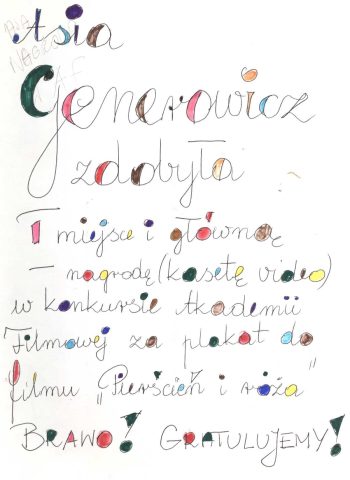 Asia
Generowicz
zdobyła
I miejsce i główną
nagrodę (kasetę video)
w konkursie Akademii
Filmowej za plakat do
filmu „Pierścień i róża"
BRAWO! GRATULUJEMY!